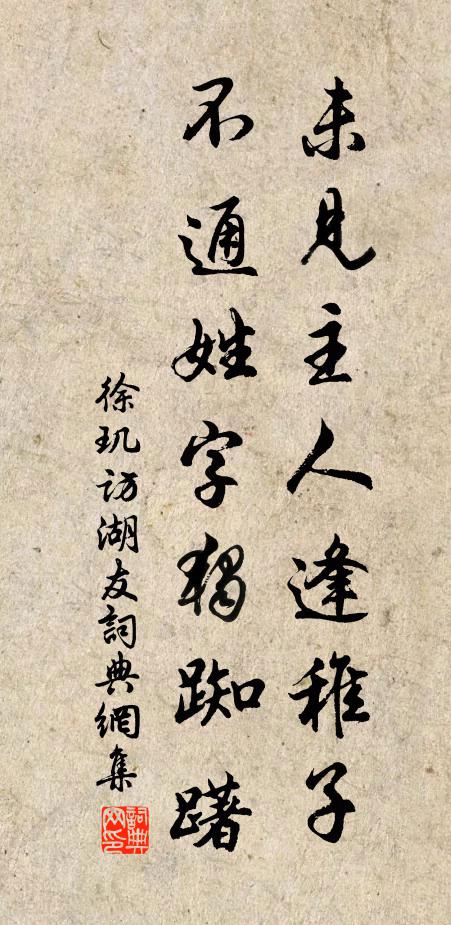 未見主人逢稚子
不通姓字獨踟躇
徐玑訪湖友詞典網集
詞典网印